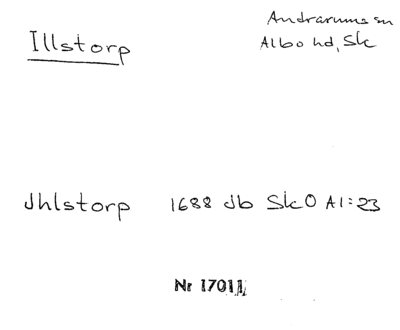 Illstorp
Andrarums sn
Albo hd, Sk
Jhlstorp 1688 Jb SkO A1:23
Nr 17011